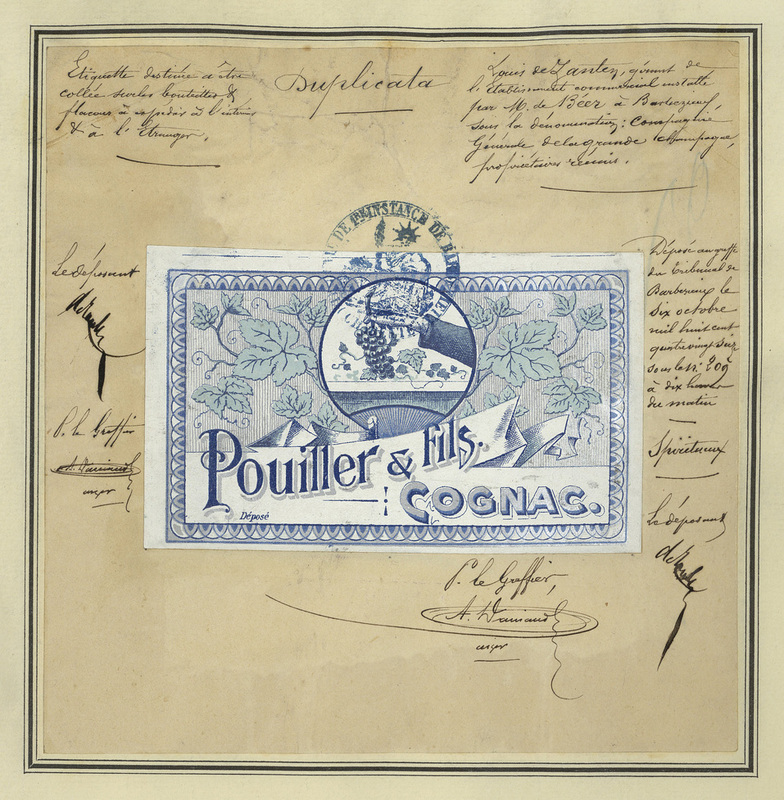 Etiquette destinée à être
collée sur les bouteilles &
flacons à expédier à l'intérieur
& à l'Etranger.
Duplicata
Louis de Zantez, gérant de
l'établissement commercial installé
par M. de Béer à Barbezieux,
sous la dénomination: Compagnie
Générale de la grande Champagne,
propriétaires réunis.
DE 1RE INSTANCE DE
Le déposant
P. le Greffier
A. Dariaud
Déposé au greffe
du Tribunal de
Barbezieux le
Six octobre
mil huit cent
quatre vingt six
sous le N° 209
à dix heures
du matin
Spiritueux
Le déposant
Pouiller & Fils.
COGNAC.
Déposé
P. le Greffier,
A. Dariaud